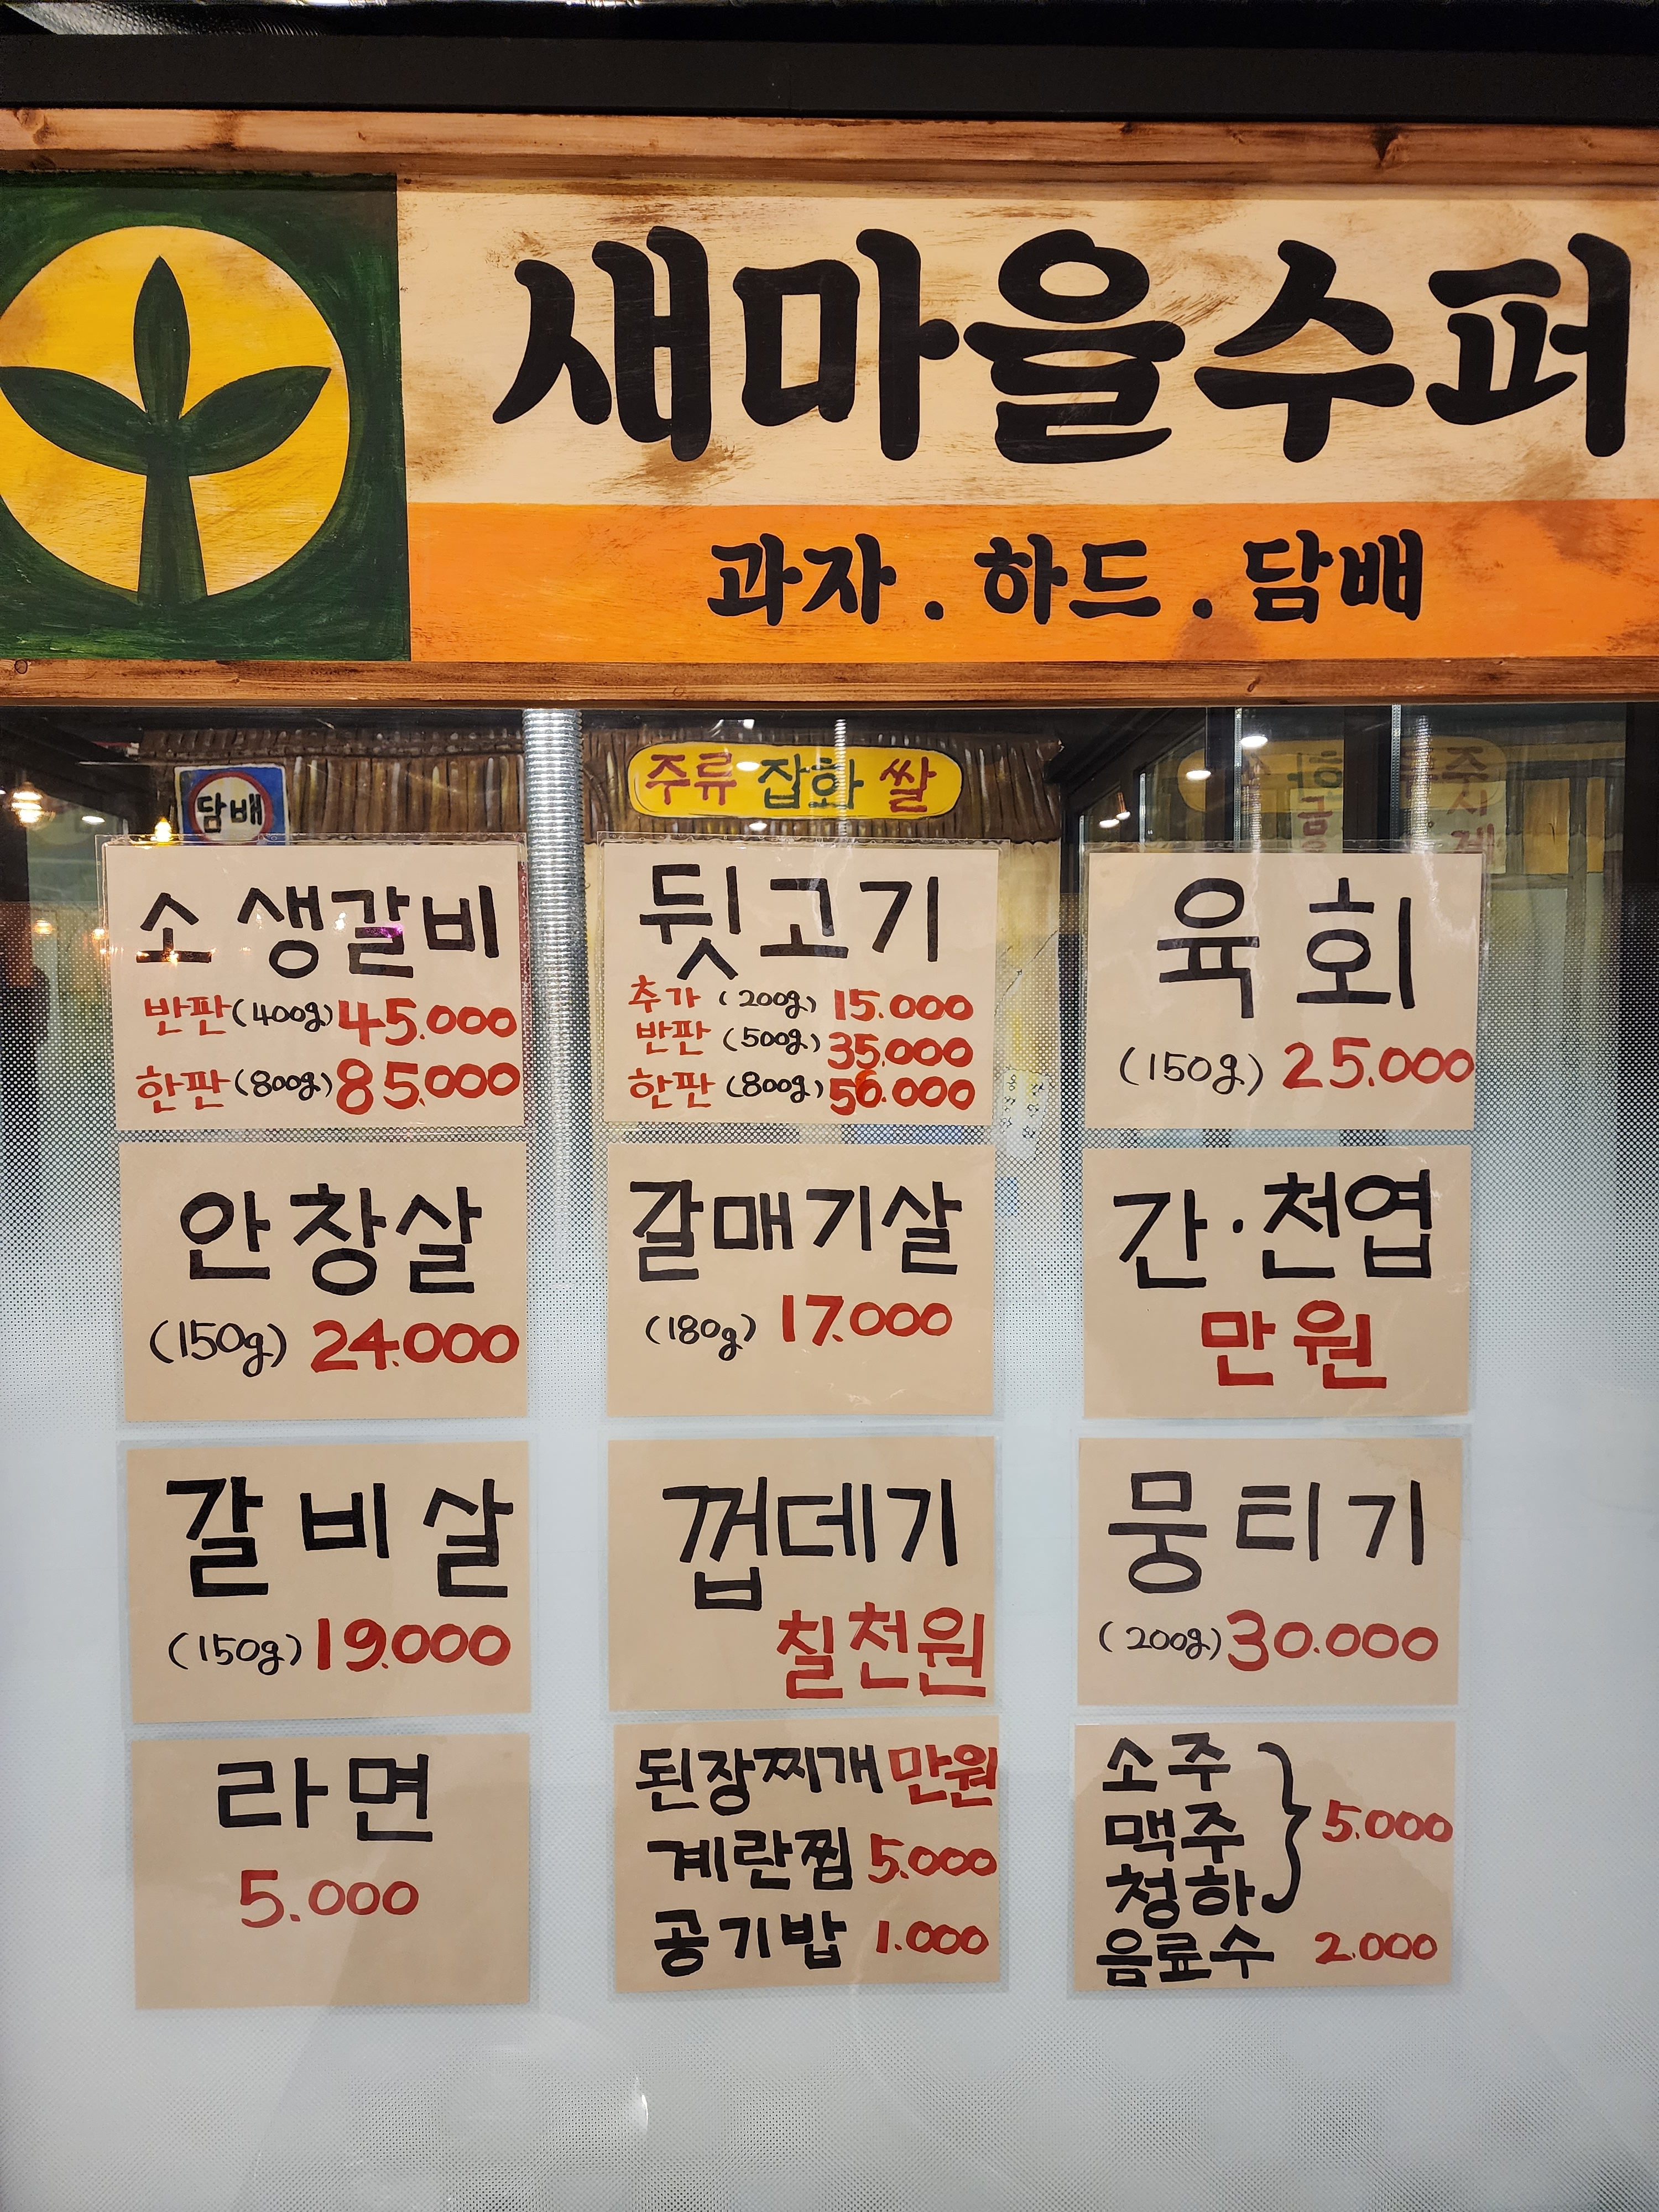 새마을수퍼
과자 . 하드 . 담배
담배
주류 잡화 쌀
소 생갈비
반판 (400g) 45.000
한판 (800g) 85.000
뒷고기
추가 (200g) 15.000
반판 (500g) 35.000
한판 (800g) 56.000
육회
(150g) 25.000
안창살
(150g) 24.000
갈매기살
(180g) 17.000
간·천엽
만원
갈비살
(150g) 19.000
껍데기
칠천원
뭉티기
(200g) 30.000
라면
5.000
된장찌개 만원
계란찜 5.000
공기밥 1.000
소주
맥주 } 5.000
청하
음료수 2.000